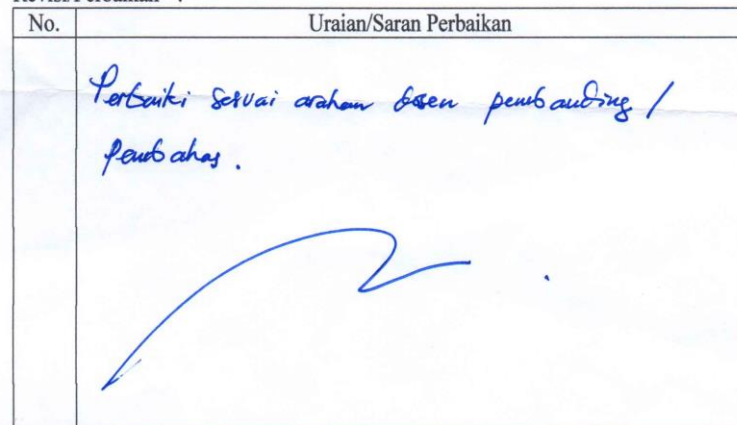 No. Uraian/Saran Perbaikan
Perbaiki sesuai arahan dosen pembanding /
Pembahas.